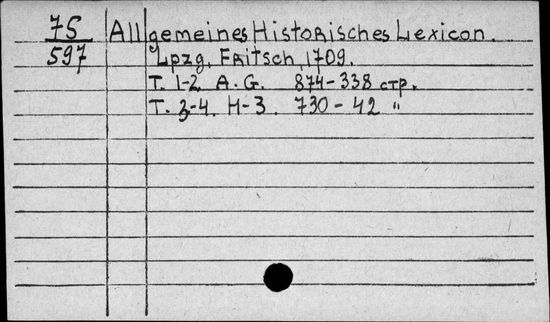 75 Allgemeines Historisches Lexicon.
597 Lpzg, Fritsch, 1709.
T. 1-2. A. G. 874-338 стр.
T. 3-4. H-3. 730-42 "